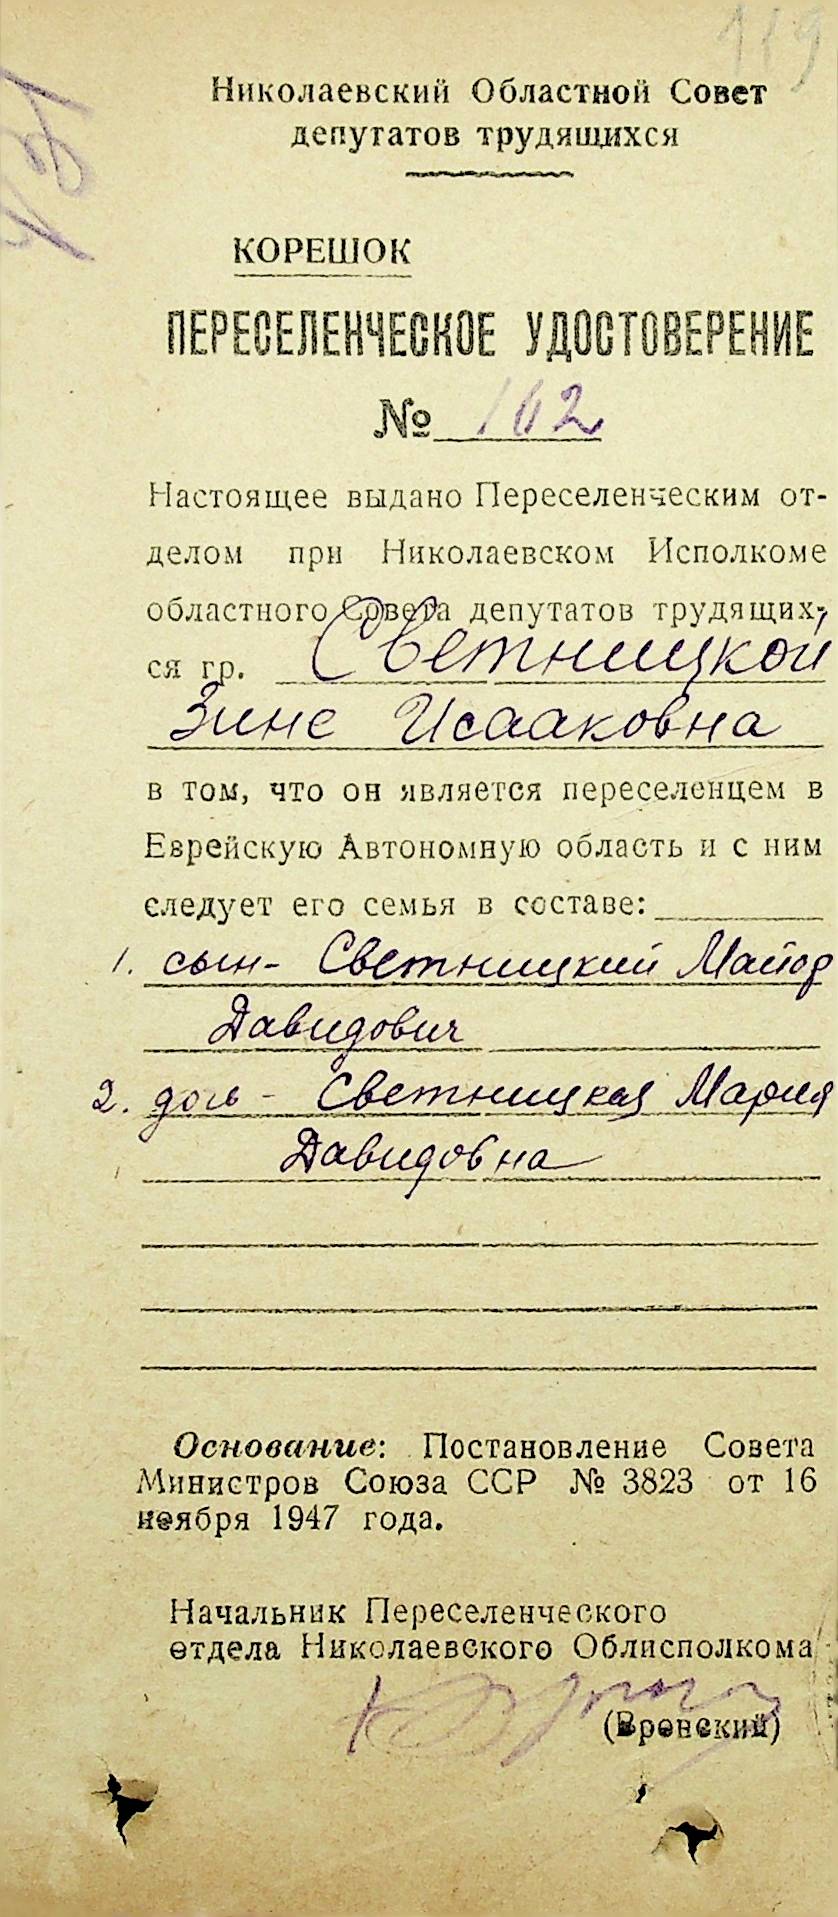 119
Николаевский Областной Совет
депутатов трудящихся
КОРЕШОК
ПЕРЕСЕЛЕНЧЕСКОЕ УДОСТОВЕРЕНИЕ
№ 162
Настоящее выдано Переселенческим от-
делом при Николаевском Исполкоме
областного Совета депутатов трудящих-
ся гр. Светницкой
Зине Исааковна
в том, что он является переселенцем в
Еврейскую Автономную область и с ним
следует его семья в составе:
1. сын - Светницкий Майор
Давидович
2. дочь - Светницкая Мария
Давидовна
Основание: Постановление Совета
Министров Союза ССР № 3823 от 16
ноября 1947 года.
Начальник Переселенческого
отдела Николаевского Облисполкома
(Вронский)